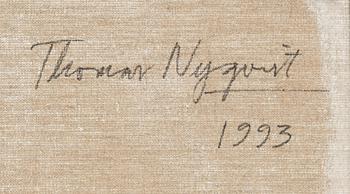 Thomas Nyqvist
1993